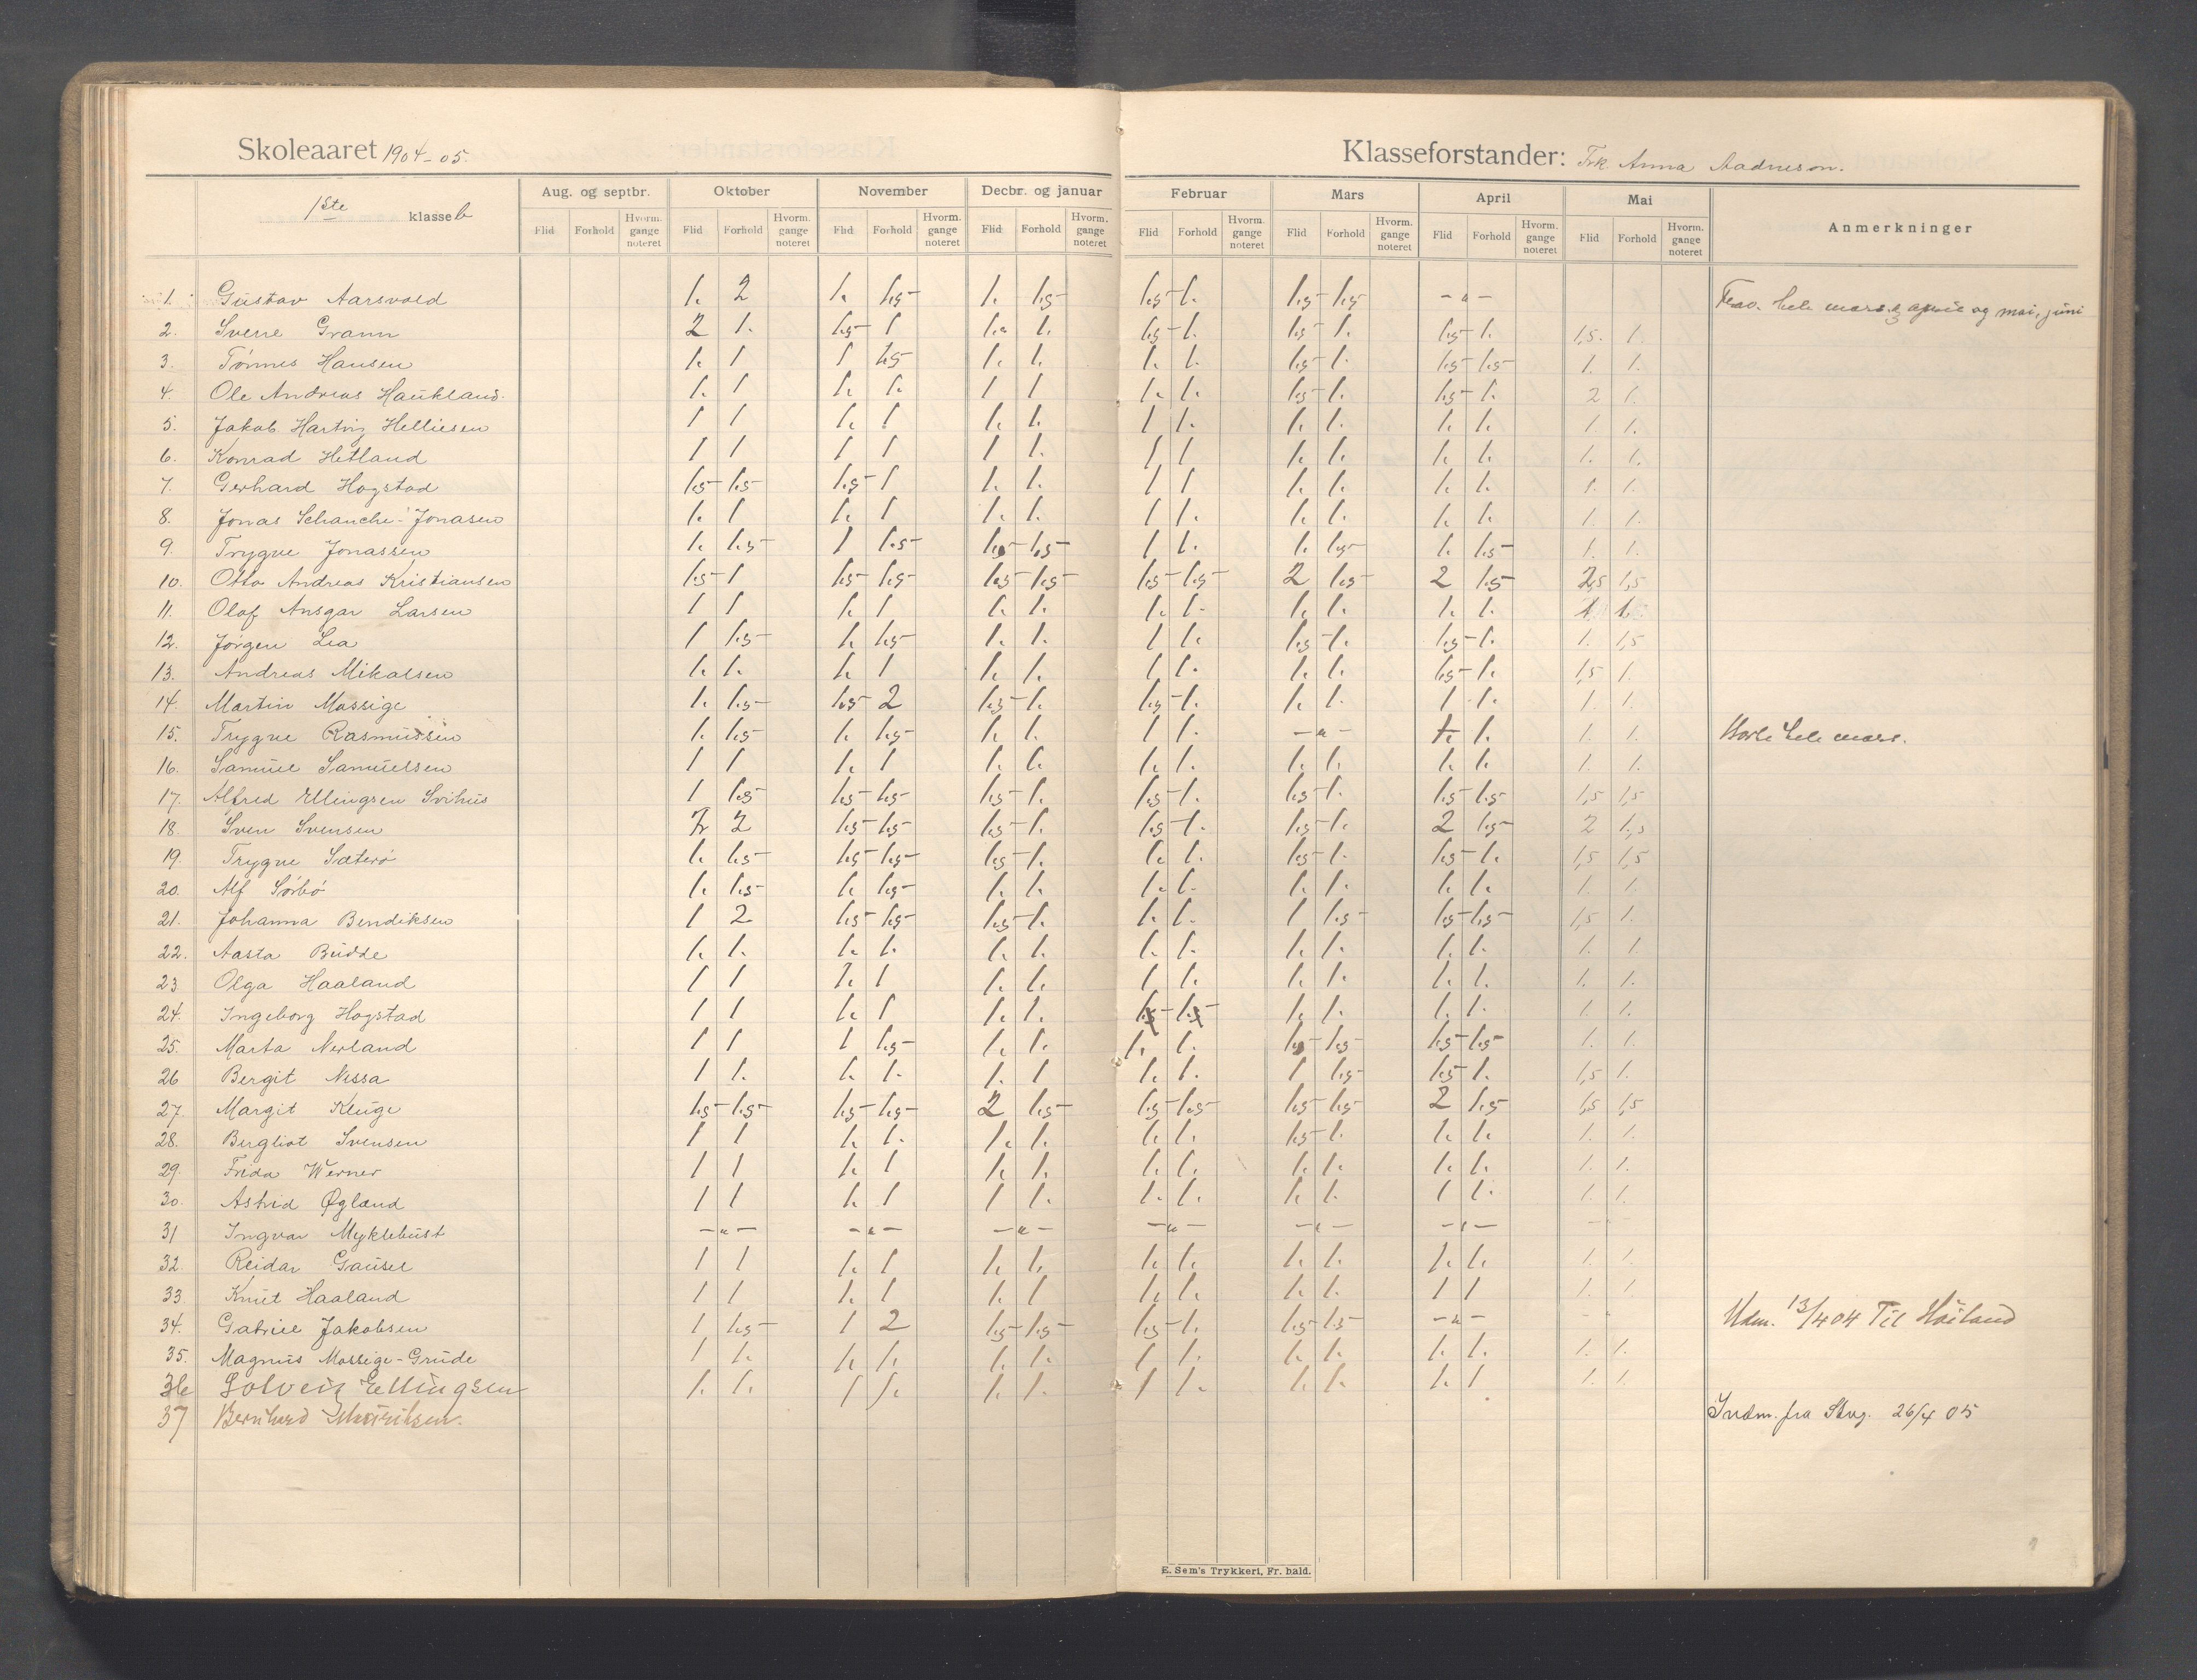 Skoleaaret 1904-05.
Klasseforstander: Frk. Anna Aadnesen.
1ste klasse b
Aug. og septbr. Oktober November Decbr. og januar Februar Mars April Mai Anmerkninger
Flid Forhold Hvorm. gange noteret Flid Forhold Hvorm. gange noteret Flid Forhold Hvorm. gange noteret Flid Forhold Hvorm. gange noteret Flid Forhold Hvorm. gange noteret Flid Forhold Hvorm. gange noteret Flid Forhold Hvorm. gange noteret Flid Forhold Hvorm. gange noteret
1. Gustav Aarsvold 1. 2 1. 1.5- 1. 1.5- 1.5- 1. 1.5- 1.5- -"- Frav. hele mars, april og mai, juni
2. Sverre Grann 2 1. 1.5- 1 1. 1. 1.5- 1. 1.5- 1. 1.5- 1. 1,5. 1.
3. Tønnes Hansen 1. 1 1 1.5- 1. 1. 1. 1. 1.5- 1. 1.5- 1.5- 1. 1.
4. Ole Andreas Haukland. 1. 1 1. 1. 1 1 1. 1. 1.5- 1. 1.5- 1. 2 1.
5. Jakob Hartvig Helliesen 1 1 1. 1 1. 1. 1 1. 1. 1. 1. 1. 1. 1.
6. Konrad Hetland 1 1 1 1 1 1. 1 1 1. 1. 1. 1. 1. 1.
7. Gerhard Hogstad 1.5- 1.5- 1.5- 1 1. 1. 1 1 1. 1. 1. 1. 1. 1.
8. Jonas Schanche-Jonasen 1. 1 1. 1 1. 1. 1 1. 1. 1. 1. 1. 1. 1.
9. Trygve Jonassen 1. 1.5- 1 1.5- 1.5- 1.5- 1 1. 1. 1.5- 1. 1.5- 1. 1.
10. Otto Andreas Kristiansen 1.5- 1 1.5- 1.5- 1.5- 1.5- 1.5- 1.5- 2 1.5- 2 1.5- 2,5 1,5
11. Olaf Ansgar Larsen 1 1 1. 1 1. 1. 1. 1. 1. 1. 1. 1. 1. 1.
12. Jørgen Lea 1 1.5- 1. 1.5- 1. 1. 1 1. 1.5- 1. 1.5- 1. 1. 1,5
13. Andreas Mikalsen 1. 1. 1. 1 1. 1. 1. 1. 1. 1. 1.5- 1. 1,5 1.
14. Martin Mossige 1. 1.5- 1.5- 2 1.5- 1. 1.5- 1. 1. 1. 1 1. 1. 1.
15. Trygve Rasmussen 1. 1.5- 1. 1.5- 1. 1. 1 1. -"- 1. 1. 1. 1. Borte hele mars.
16. Samuel Samuelsen 1 1 1. 1 1. 1. 1. 1. 1. 1. 1. 1. 1. 1.
17. Alfred Ellingsen Svihus 1 1.5 1.5- 1.5- 1.5- 1. 1.5- 1. 1.5- 1. 1.5- 1.5- 1,5 1,5
18. Sven Svensen 2 2 1.5- 1.5- 1.5- 1. 1.5- 1. 1.5- 1. 2 1.5- 2 1.5
19. Trygve Sæterø 1. 1.5- 1.5- 1.5- 1.5- 1. 1. 1. 1.5- 1. 1.5- 1. 1,5 1,5
20. Alf Sørbø 1. 1.5- 1. 1.5- 1. 1. 1. 1. 1. 1. 1. 1. 1. 1.
21. Johanna Bendiksen 1 2 1.5- 1.5- 1.5- 1. 1. 1. 1 1.5- 1.5- 1.5- 1,5 1.
22. Aasta Budde 1. 1. 1. 1. 1. 1. 1. 1. 1. 1. 1. 1. 1. 1.
23 Olga Haaland 1 1 1. 1 1. 1. 1 1. 1. 1. 1. 1. 1. 1.
24. Ingeborg Hogstad 1 1 1. 1 1. 1. 1.5- 1.5- 1. 1. 1. 1. 1. 1.
25. Marta Nerland 1 1 1 1.5- 1. 1. 1. 1. 1.5- 1.5- 1.5- 1.5- 1. 1.
26 Bergit Nessa 1 1. 1. 1. 1. 1 1. 1. 1 1.5- 1.5- 1. 1,5 1.
27. Margit Kluge 1.5- 1.5- 1.5- 1.5- 2 1.5- 1.5- 1.5- 1.5- 1.5- 2 1.5 1,5 1,5
28. Bergliot Svensen 1 1 1. 1. 1. 1. 1. 1. 1.5- 1. 1. 1. 1. 1.
29. Frida Werner 1 1 1. 1 1. 1. 1. 1. 1. 1. 1. 1. 1. 1.
30. Astrid Øgland 1 1 1. 1 1 1. 1. 1. 1. 1. 1 1. 1. 1.
31 Ingvar Myklebust -"- -"- -"- -"- -"- -"-
32. Reidar Gausel 1 1 1. 1 1. 1. 1. 1. 1. 1. 1. 1. 1. 1.
33. Knut Haaland 1 1 1. 1 1. 1 1. 1. 1. 1. 1 1 1. 1.
34. Gabriel Jakobsen 1 1.5- 1 2 1.5- 1.5- 1.5- 1. 1.5- 1.5- -"- Udm. 13/4 04 Til Høiland
35. Magnus Mossige-Grude 1 1. 1. 1. 1. 1. 1 1. 1. 1. 1. 1. 1. 1.
36 Solveig Ellingsen 1. 1. 1 1. 1. 1. 1 1. 1. 1. 1. 1 1. 1.
37 Bernhard Indm. fra Stvg. 26/4 05
E. Sem's Trykkeri, Fr. hald.